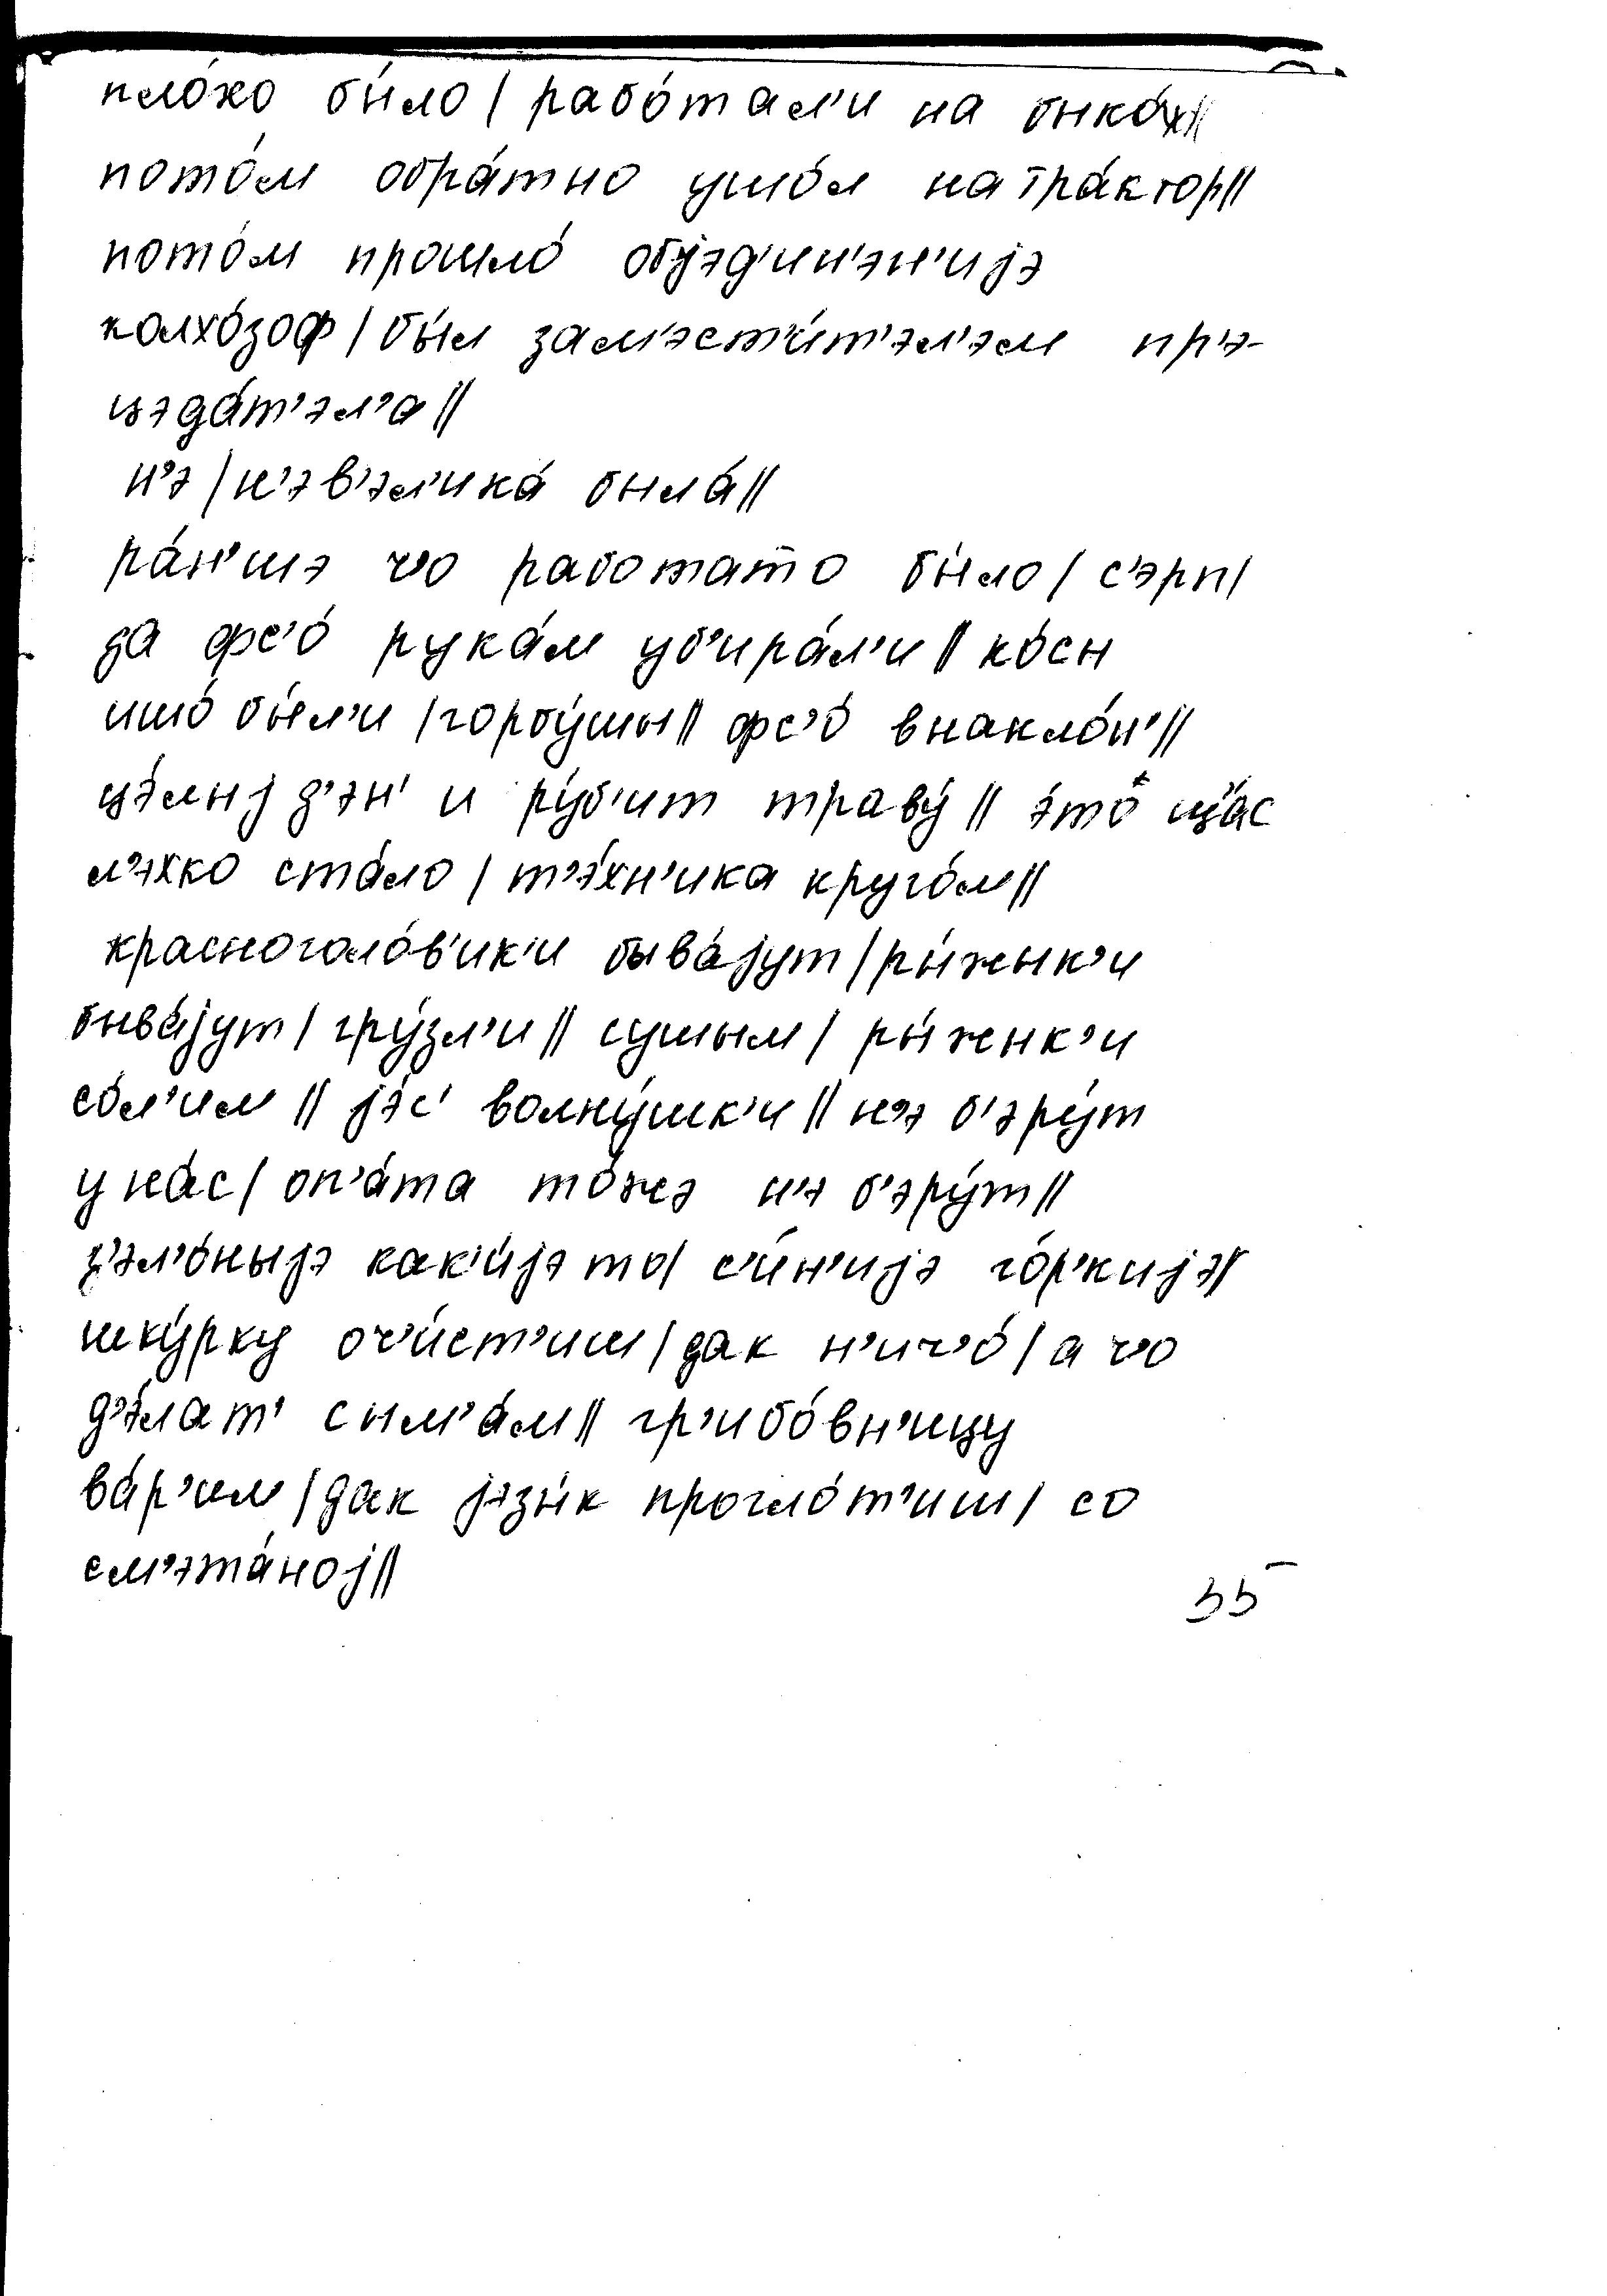 пло́хо бы́ло / рабо́тал'и на быка́х //
пото́м обра́тно ушо́л на тра́ктор //
пото́м прошло́ обjэд'ин'э́н'иjэ
колхо́зоф / бы́л зам'эст'и́т'эл'эм пр'э-
цэда́т'эл'а //
н'э / н'эв'эл'ика́ была́ //
ра́н'шэ ч'о работато бы́ло / с'эрп /
да фс'о́ рука́м уб'ира́л'и // ко́сы
ишо́ бы́л'и / горбу́шы // фс'о́ внакло́н' //
цэ́лыj д'эн' и ру́б'ит траву́ // э́то ща́с
л'эхко ста́ло / т'э́хн'ика круго́м //
красноголо́в'ик'и быва́jут / ры́жык'и
быва́jут / гру́зл'и // сушым / ры́жык'и
со́л'им // jэ́с' волну́шк'и // н'э б'эру́т
у на́с / оп'а́та то́жэ н'э б'эру́т //
з'эл'о́ныjэ как'и́jэ то / с'и́н'иjэ го́р'киjэ //
шку́рку оч'и́ст'иш / дак н'ич'о́ / а ч'о
д'э́лат' с ым'а́м // гр'ибо́вн'ицу
ва́р'им / дак jэзы́к прогло́т'иш / со
см'эта́ноj //
35